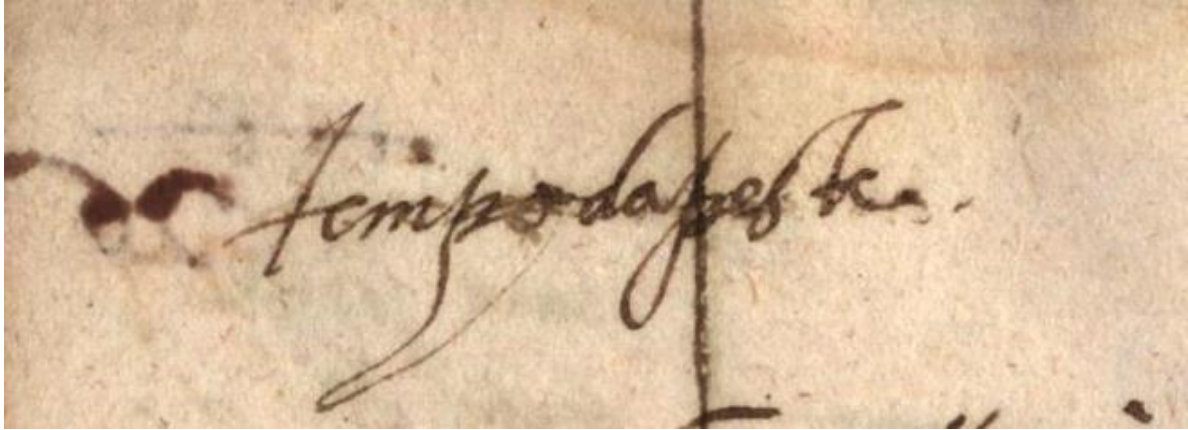 tempo da peste.